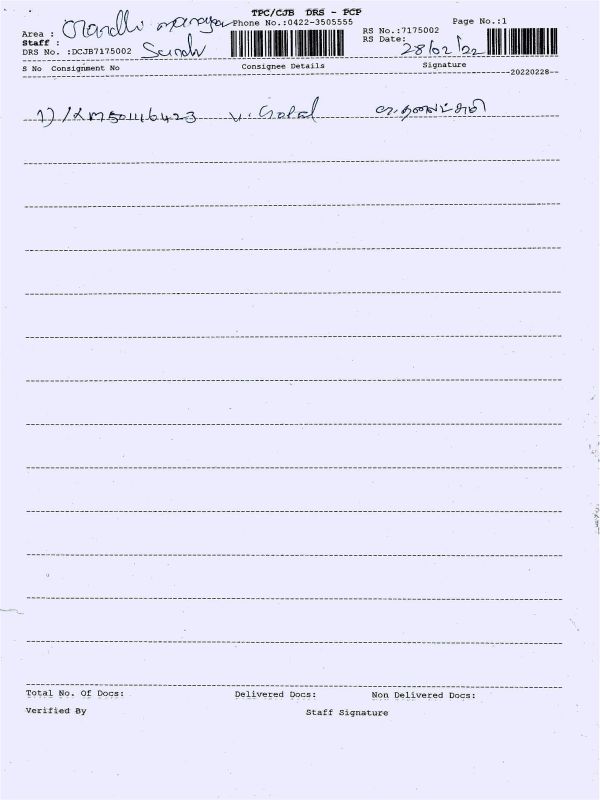 TPC/CJB DRS - PCP
Area : Phone No.:0422-3505555 Page No.:1
Staff : RS No.:7175002
DRS No. :DCJB7175002 RS Date: 28/02/22
S No Consignment No Consignee Details Signature
--20220228--
1) 50146423 V. Gopal
Total No. Of Docs: Delivered Docs: Non Delivered Docs:
Verified By Staff Signature